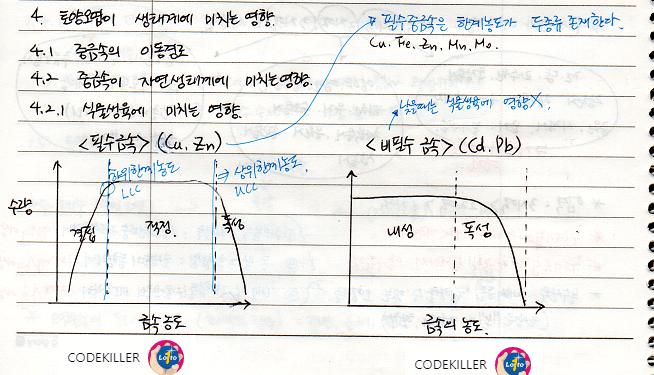 4. 토양오염이 생태계에 미치는 영향.
* 필수중금속은 한계농도가 두종류 존재한다.
Cu. Fe. Zn. Mn. Mo.
4.1 중금속의 이동경로
4.2 중금속이 자연생태계에 미치는영향.
4.2.1 식물생육에 미치는 영향.
낮을때는 식물생육에 영향X.
<필수금속> (Cu, Zn)
<비필수 금속> (Cd, Pb)
하위한계농도
LCC
상위한계농도
UCC
수량
결핍
적정.
독성
내성
독성
금속농도
금속의 농도.
CODEKILLER
Lotto
CODEKILLER
Lotto